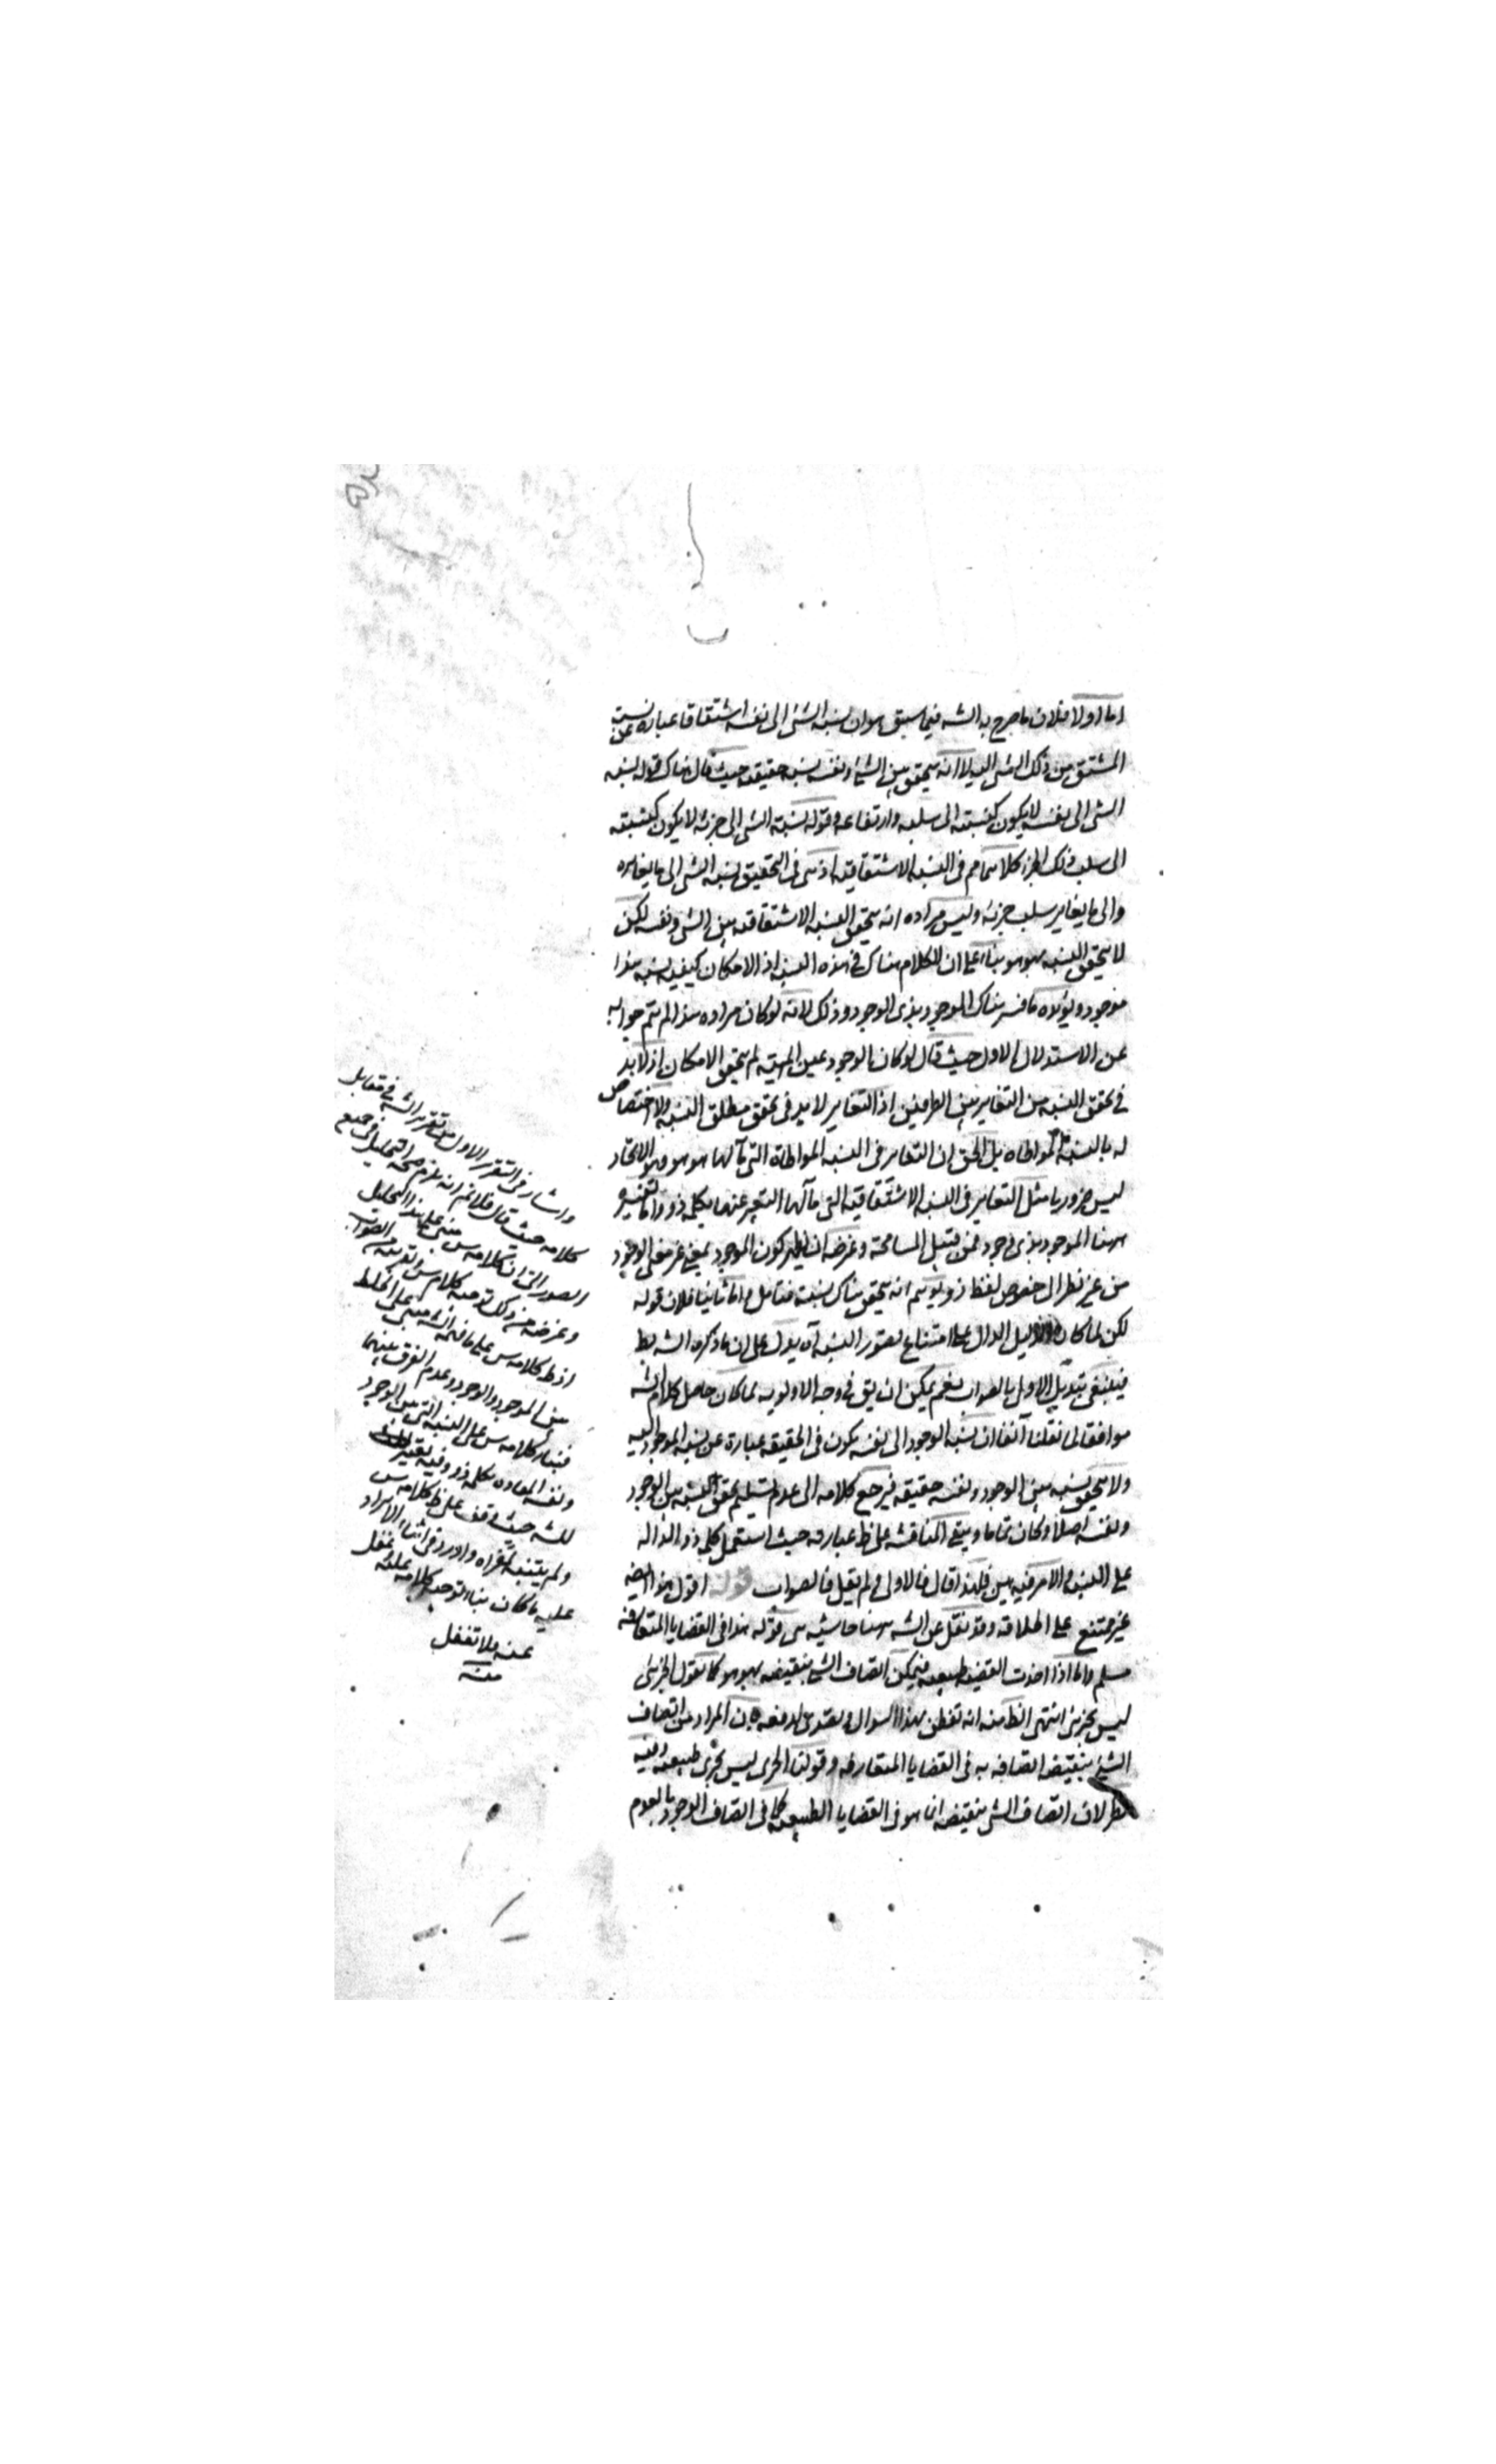 اما اولا فلان ما صرح به الشه فيما سبق هو ان نسبة الشئ الى نفسه اشتقاقا عبارة عن نسبة
المشتق من ذلك الشئ اليه لا انه يتحقق بين الشئ ونفسه نسبة حقيقة حيث قال هناك قوله نسبة
الشئ الى نفسه لا يكون كنسبته الى سلبه وارتفاعه وقوله نسبة الشئ الى جزئه لا يكون كنسبته
الى سلب ذلك الجزء كلاهما في النسبة الاشتقاقية اذ هي في التحقيق نسبة الشئ الى ما يغايره
والى ما يغاير سلب جزئه وليس مراده انه يتحقق النسبة الاشتقاقية بين الشئ ونفسه لكن
لا يتحقق النسبة بهو هو بناء على ان الكلام هناك في هذه النسبة اذ الامكان كيفية نسبة هذا
موجود ويؤيده ما فسر هناك الموجود بذي الوجود وذلك لانه لو كان مراده هذا لم يتم جوابه
عن الاستدلال الاول حيث قال لو كان الوجود عين المهية لم يتحقق الامكان اذ لا بد
في تحقق النسبة من التغاير بين الطرفين اذ التغاير لا بد في تحقق مطلق النسبة ولا اختصاص
له بالنسبة المواطاة بل الحق ان التغاير في النسبة المواطاة التي مآلها هو هو وهو الاتحاد
ليس ضروريا مثل التغاير في النسبة الاشتقاقية التي مآلها التعبير عنها بكلمة ذو واما تفسيره
ههنا الموجود بذي وجود فمن قبيل المسامحة وغرضه ان يظهر كون الموجود بمعنى غير معنى الوجود
من غير نظر الى خصوص لفظ ذو يوهم انه يتحقق هناك نسبة فتامل واما ثانيا فلان قوله
لكن لما كان الدليل الدال على امتناع تصور النسبة آه يدل على ان ما ذكره الشه
فينبغي تبديل الاولى بالصواب نعم يمكن ان يق في وجه الاولوية لما كان حاصل كلام الشه
موافقا لما نقلنا آنفا ان نسبة الوجود الى نفسه يكون في الحقيقة عبارة عن نسبة الموجود اليه
ولا يتحقق نسبة بين الوجود ونفسه حقيقة فيرجع كلامه الى عدم تسليم تحقق النسبة بين الوجود
ونفسه اصلا وكان تماما ويبقى المناقشة على ظ عبارته حيث استعمل كلمة ذو الدالة
على النسبة والامر فيه هين فلهذا قال فالاولى ولم يقل فالصواب قوله اقول هذا ايضه
غير ممتنع على اطلاقه وقد نقل عن الشه ههنا حاشية هي قوله هذا في القضايا المتعارفة
مسلم واما اذا اخذت القضية طبيعية فيمكن اتصاف الشئ بنقيضه بهو هو كما نقول الجزئي
ليس بجزئي انتهى الظ منه انه تفطن بهذا السوال وتصدى لدفعه بان المراد من اتصاف
الشئ بنقيضه اتصافه به في القضايا المتعارفة وقولنا الجزئي ليس بجزئي طبيعية وفيه
نظر لان اتصاف الشئ بنقيضه انما هو في القضايا الطبيعية كما في اتصاف الوجود بالعدم
واشار في التقرير الاول من تقرير الشه في مقابل
كلامه حيث قال فلا تم انه يلزم صحة التحليل في جميع
الصور الى ان كلامه س مبني على هذا التحليل
وغرضه من ذلك توجيه كلام س وتقريبه من الصواب
اذ ظ كلامه س على ما فهمه الشه مبني على الخلط
بين الموجود والوجود وعدم الفرق بينهما
فبناء كلامه س على النسبة التي بين الوجود
ونفسه المفادة بكلمة ذو وفيه
للشه حيث وقف على ظ كلامه س
ولم يتنبه لمغزاه واورد في اثناء الايراد
عليه ما كان بناء توجيه كلامه عليه وغفل
عنه فلا تغفل
منه